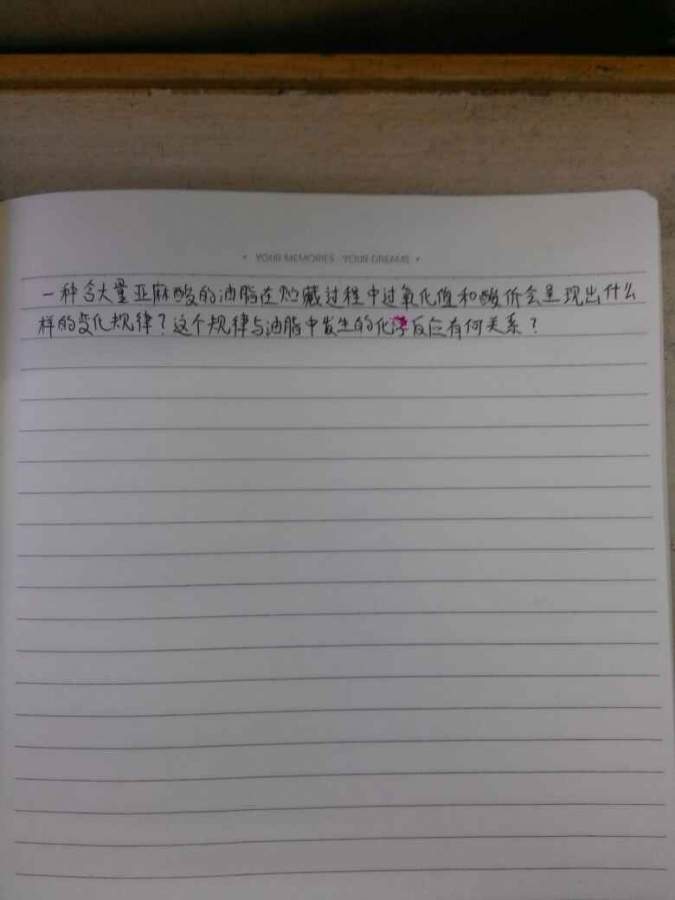 • YOUR MEMORIES · YOUR DREAMS •
一种含大量亚麻酸的油脂在贮藏过程中过氧化值和酸价会呈现出什么
样的变化规律？这个规律与油脂中发生的化学反应有何关系？